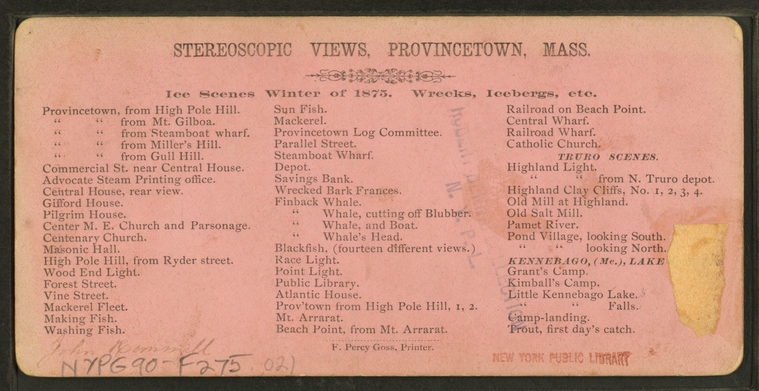 STEREOSCOPIC VIEWS, PROVINCETOWN, MASS.
Ice Scenes Winter of 1875. Wrecks, Icebergs, etc.
Provincetown, from High Pole Hill.
“ “ from Mt. Gilboa.
“ “ from Steamboat wharf.
“ “ from Miller's Hill.
“ “ from Gull Hill.
Commercial St. near Central House.
Advocate Steam Printing office.
Central House, rear view.
Gifford House.
Pilgrim House.
Center M. E. Church and Parsonage.
Centenary Church.
Masonic Hall.
High Pole Hill, from Ryder street.
Wood End Light.
Forest Street.
Vine Street.
Mackerel Fleet.
Making Fish.
Washing Fish.
Sun Fish.
Mackerel.
Provincetown Log Committee.
Parallel Street.
Steamboat Wharf.
Depot.
Savings Bank.
Wrecked Bark Frances.
Finback Whale.
“ Whale, cutting off Blubber.
“ Whale, and Boat.
“ Whale's Head.
Blackfish, (fourteen different views.)
Race Light.
Point Light.
Public Library.
Atlantic House.
Prov'town from High Pole Hill, 1, 2.
Mt. Arrarat.
Beach Point, from Mt. Arrarat.
Railroad on Beach Point.
Central Wharf.
Railroad Wharf.
Catholic Church.
TRURO SCENES.
Highland Light.
“ “ from N. Truro depot.
Highland Clay Cliffs, No. 1, 2, 3, 4.
Old Mill at Highland.
Old Salt Mill.
Pamet River.
Pond Village, looking South.
“ “ looking North.
KENNEBAGO, (Me.), LAKE
Grant's Camp.
Kimball's Camp.
Little Kennebago Lake.
“ “ Falls.
Camp-landing.
Trout, first day's catch.
F. Percy Goss, Printer.
N. Y. P. L.
John
NYPG90-F275 021
NEW YORK PUBLIC LIBRARY